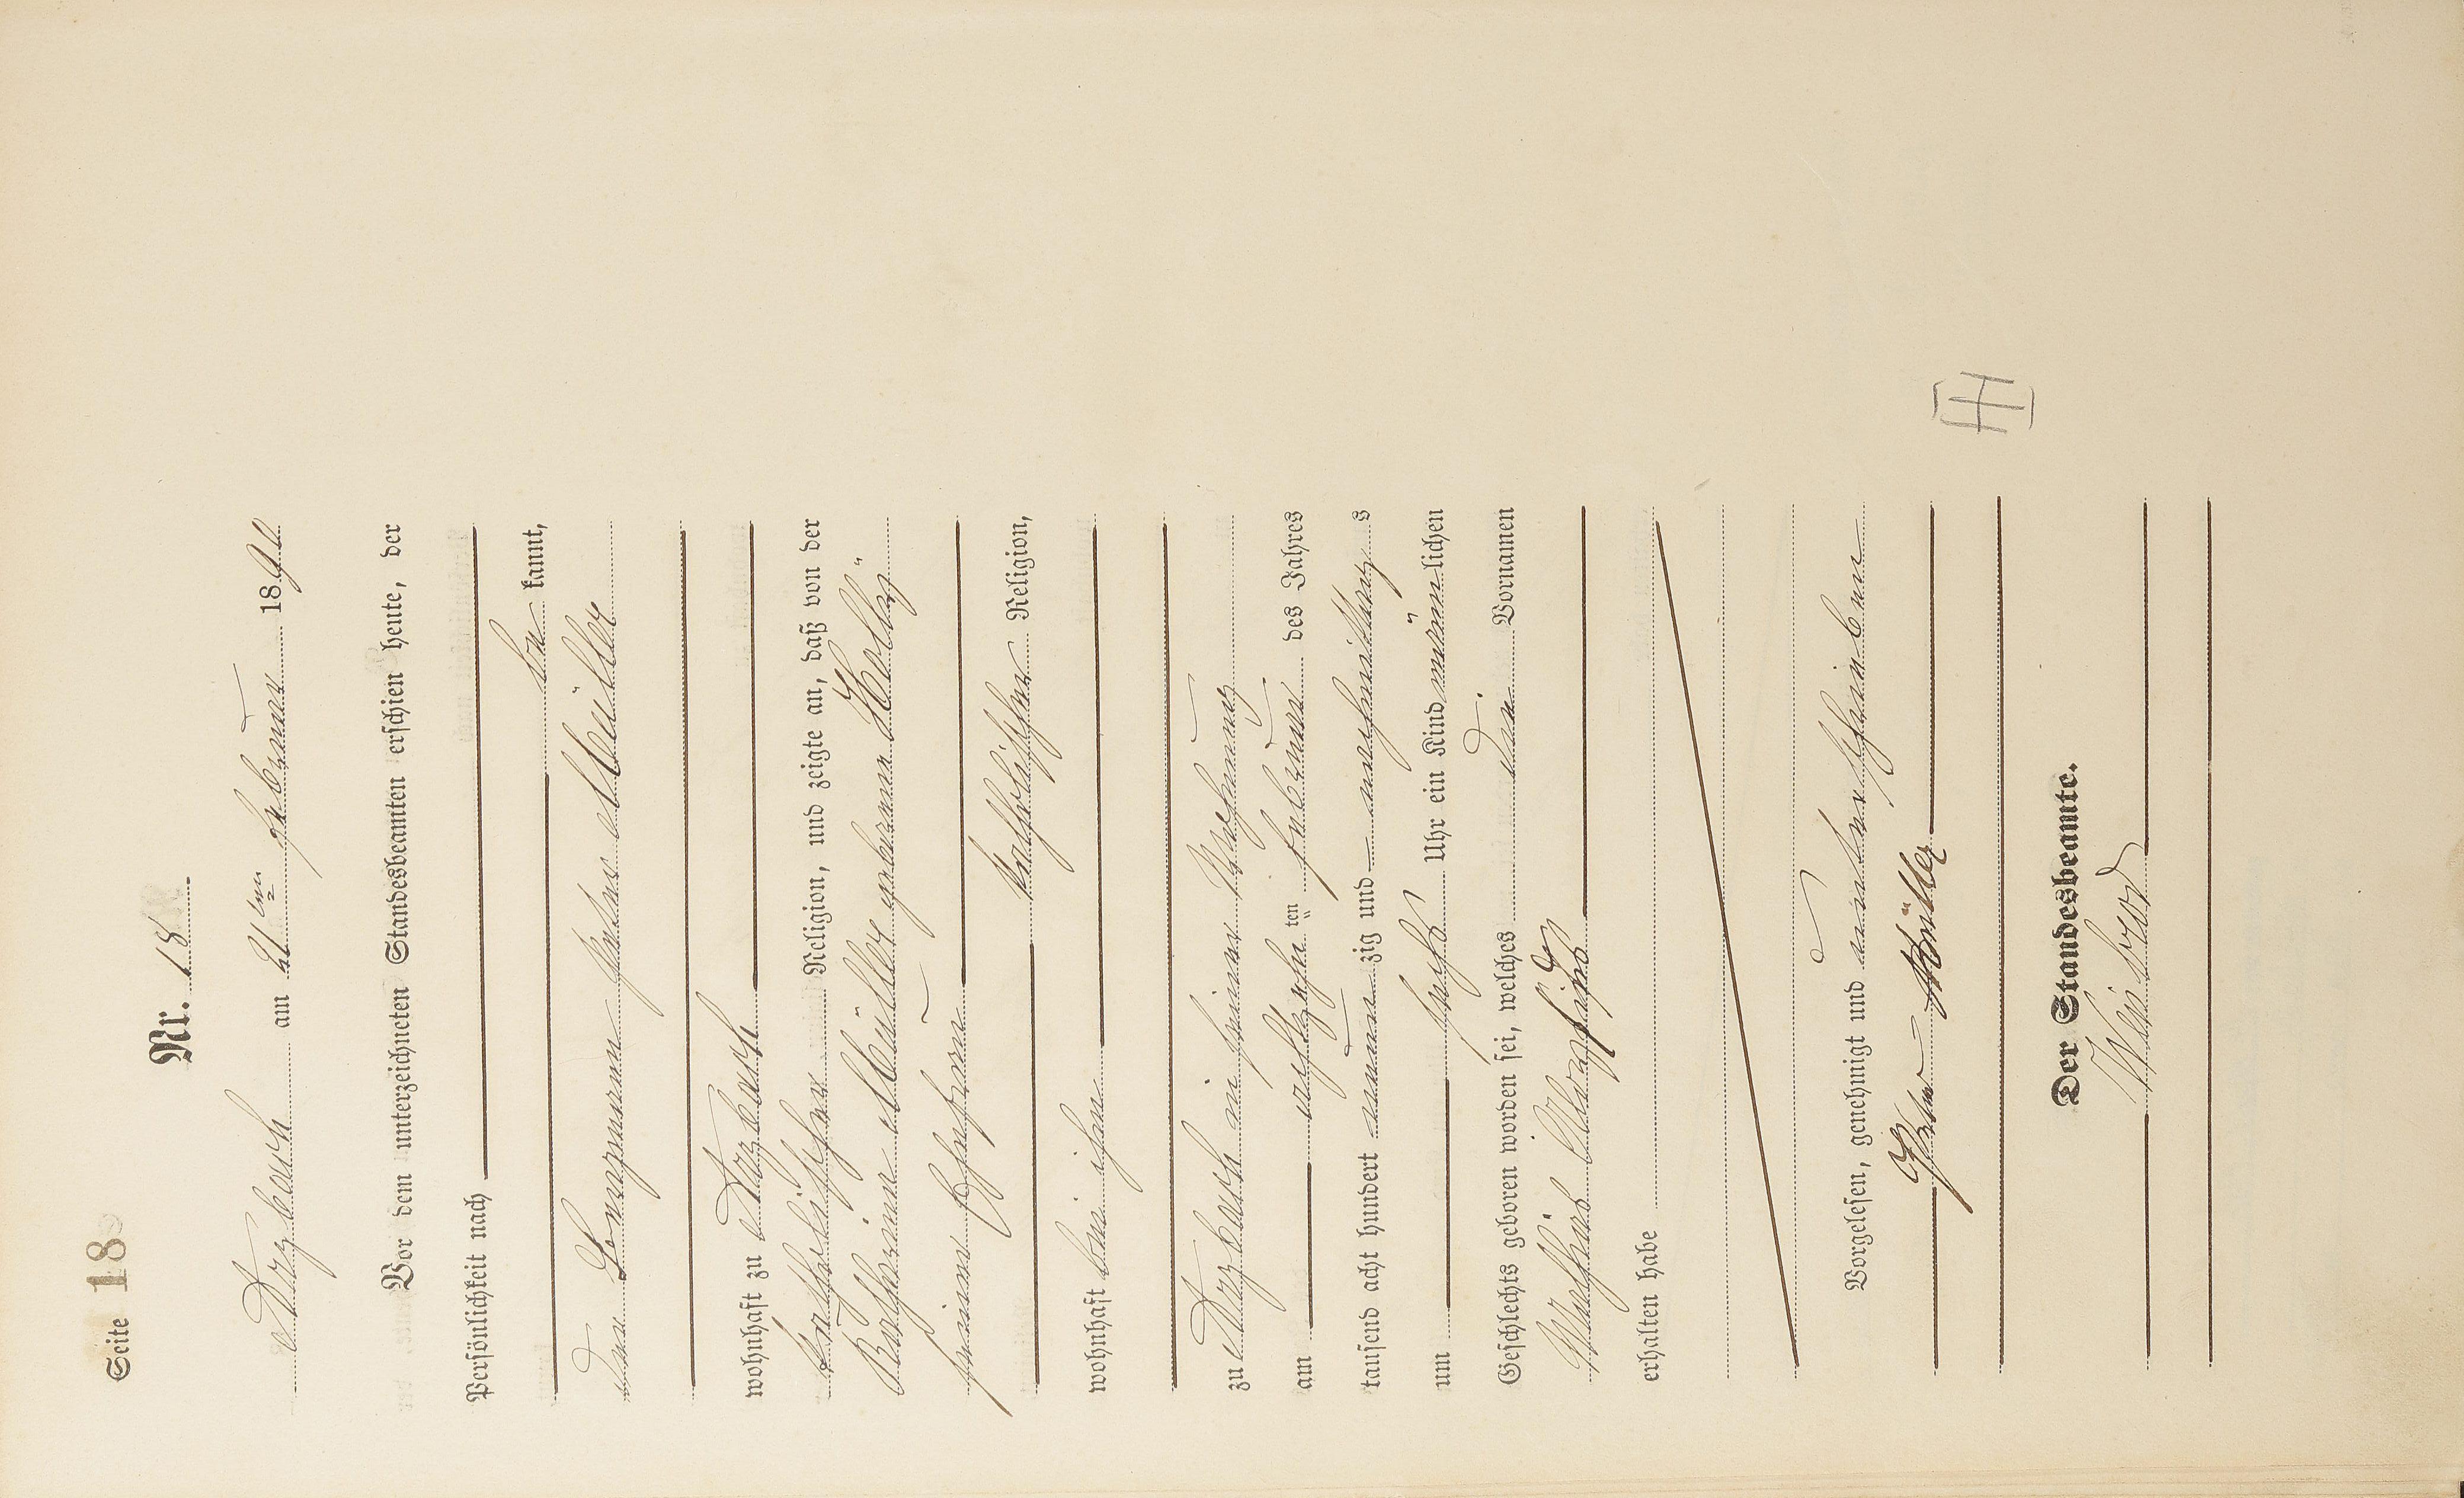 Seite 18
Nr. 18
Arzbach am 21ten Februar 1890
Vor dem unterzeichneten Standesbeamten erschien heute, der
Persönlichkeit nach
be kannt,
der Bergmann Peter Müller
wohnhaft zu Arzbach
katholischer Religion, und zeigte an, daß von der
Katharina Müller geborenen Holly
seiner Ehefrau
katholischer Religion,
wohnhaft bei ihm
zu Arzbach in seiner Wohnung
am achtzehn ten Februar des Jahres
tausend acht hundert neun zig und nachmittags
um sechs Uhr ein Kind männ lichen
Geschlechts geboren worden sei, welches den Vornamen
Mathias
erhalten habe
Vorgelesen, genehmigt und unterschrieben
Peter Müller
Der Standesbeamte.